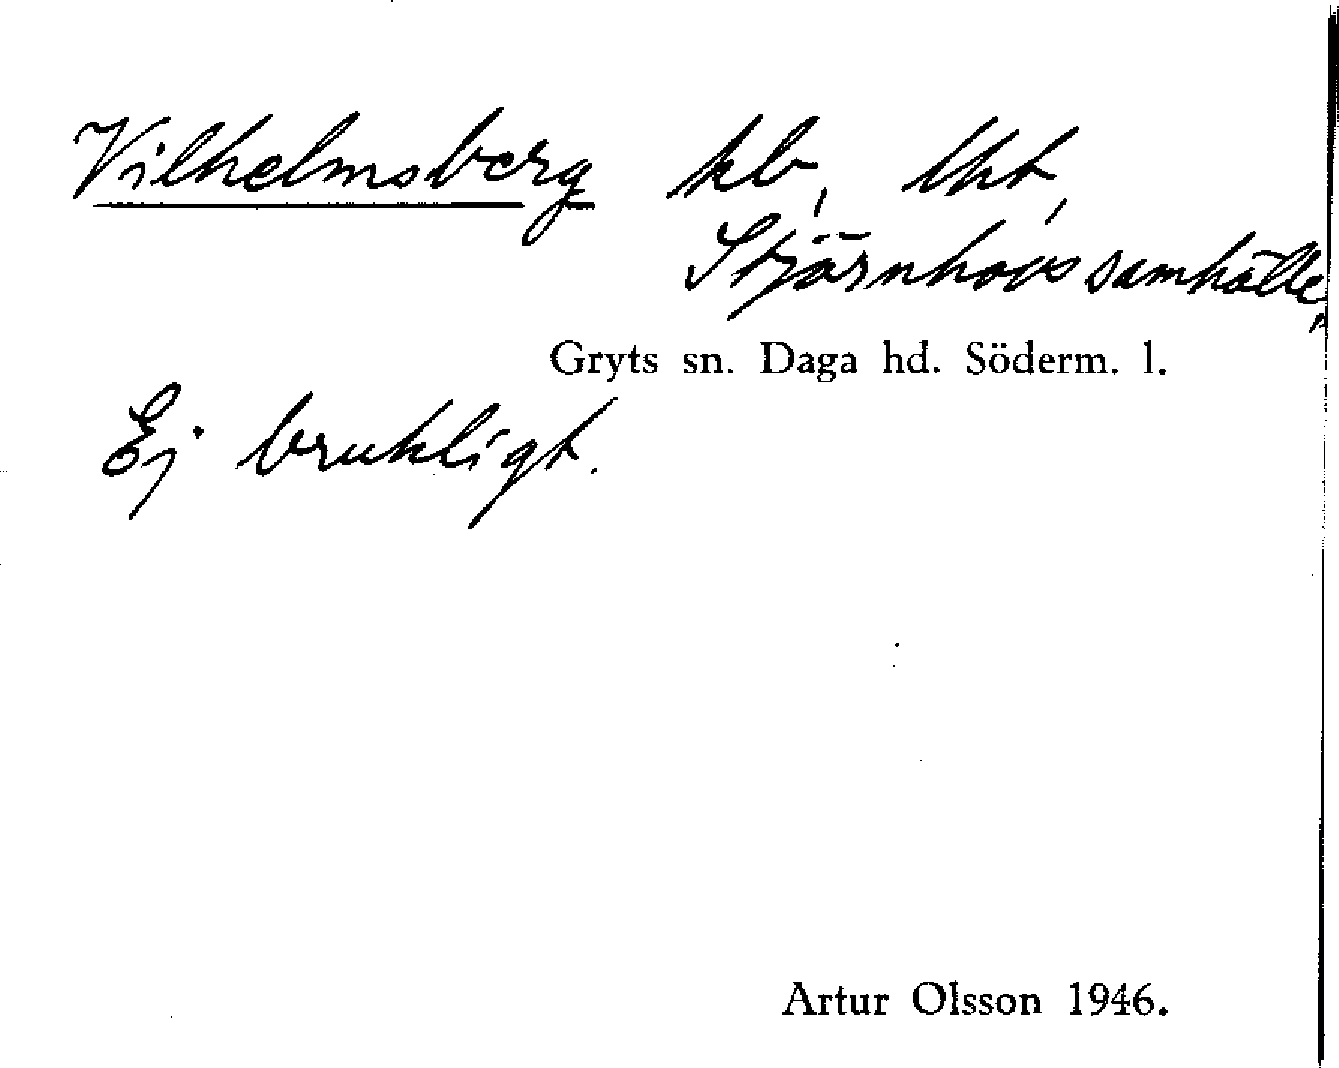 Vilhelmsberg kb, lht,
Stjärnhovs samhälle,
Gryts sn. Daga hd. Söderm. l.
Ej brukligt.
Artur Olsson 1946.